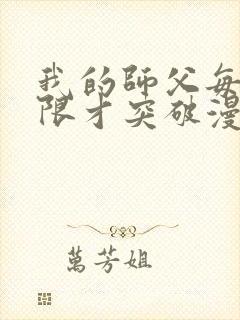 我的師父每
限才突破漫
萬芳姐